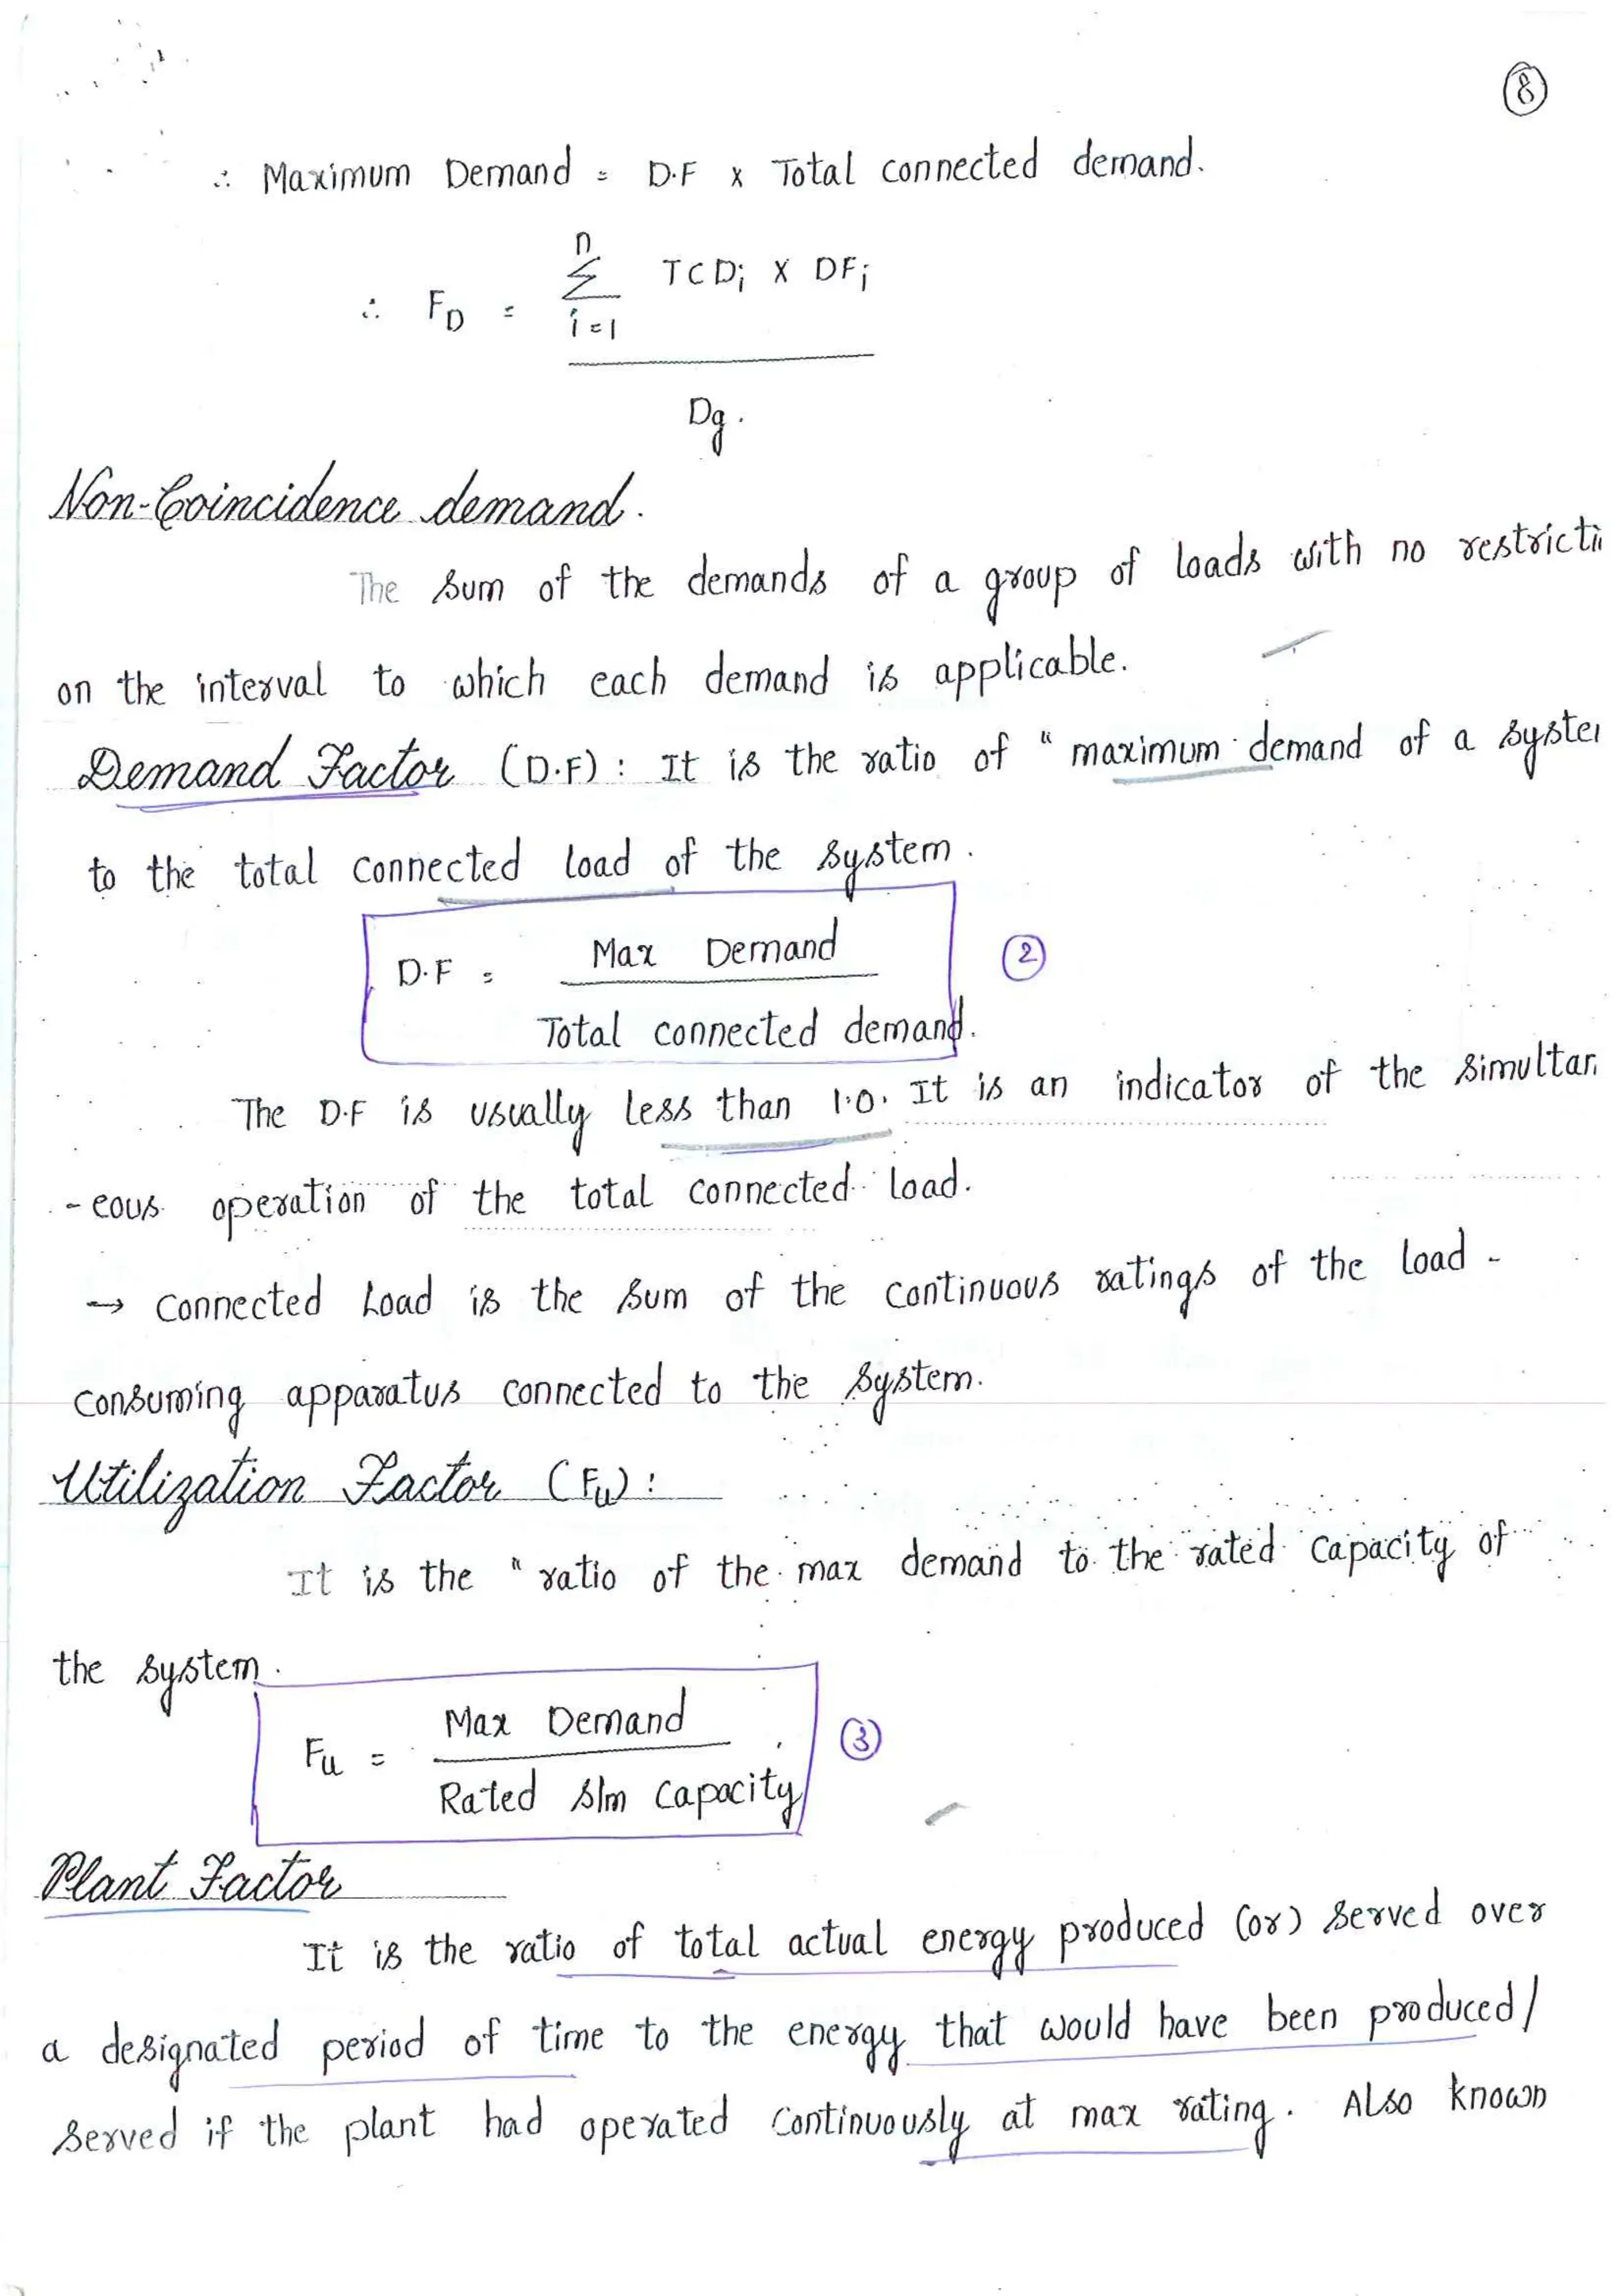 8
∴ Maximum Demand = D.F x Total connected demand.
∴ F_D = n Σ i=1 TCDi x DFi
Dg.
Non-Coincidence demand.
The sum of the demands of a group of loads with no restricti
on the interval to which each demand is applicable.
Demand Factor (D.F) : It is the ratio of " maximum demand of a syste
to the total connected load of the system.
D.F = Max Demand
2
Total connected demand.
The D.F is usually less than 1.0. It is an indicator of the simultan
- eous operation of the total connected load.
→ Connected Load is the sum of the continuous ratings of the load -
consuming apparatus connected to the system.
Utilization Factor (Fu) :
It is the " ratio of the max demand to the rated capacity of
the system.
Fu = Max Demand
3
Rated s/m capacity
Plant Factor
It is the ratio of total actual energy produced (or) served over
a designated period of time to the energy that would have been produced/
served if the plant had operated continuously at max rating. Also known